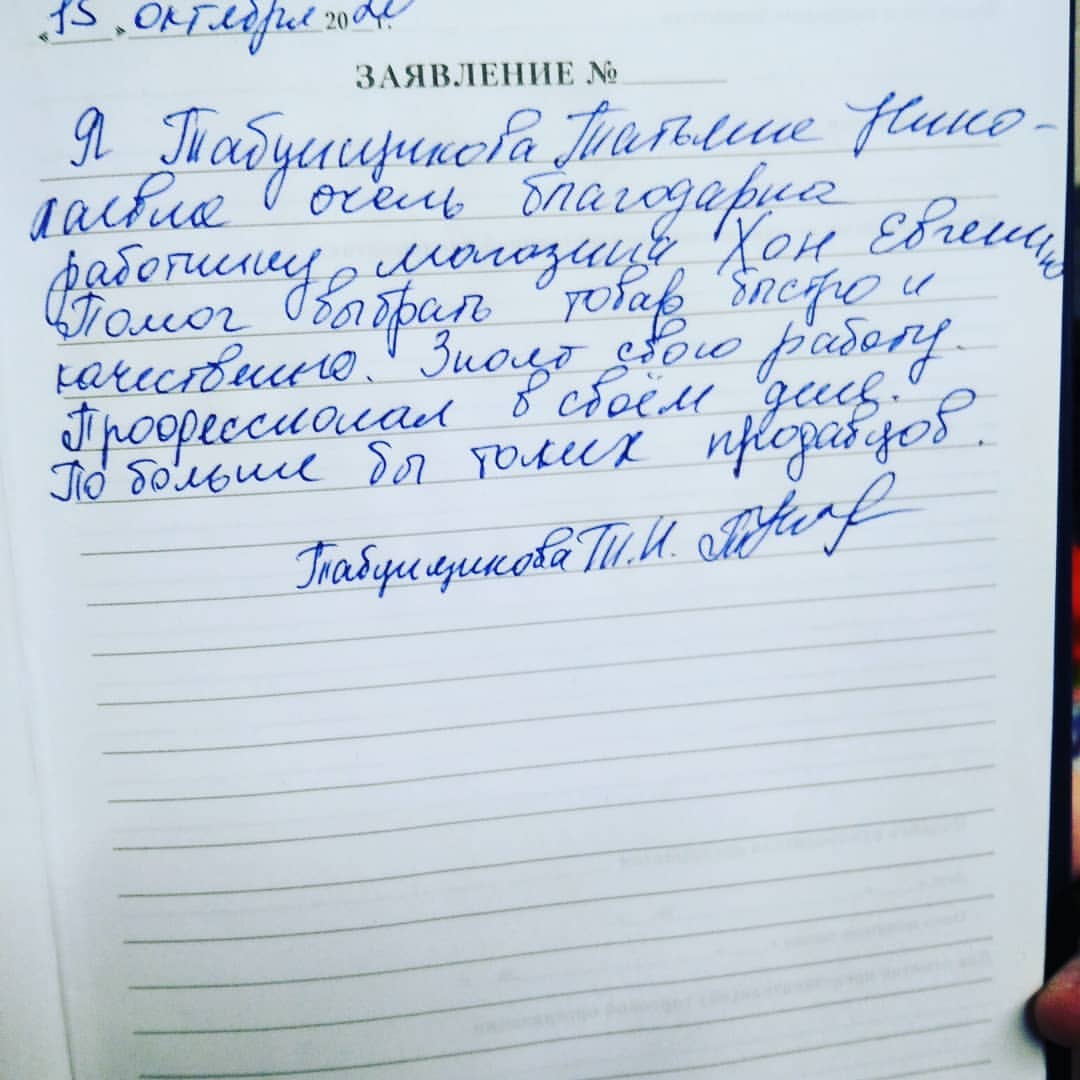 «15» октября 2020 г.
ЗАЯВЛЕНИЕ №
Я Табунщикова Татьяна Нико-
лаевна очень благодарна
работнику магазина Хон Евгению
Помог выбрать товар быстро и
качественно. Знает свою работу.
Профессионал в своём деле.
По больше бы таких продавцов.
Табунщикова Т.Н.